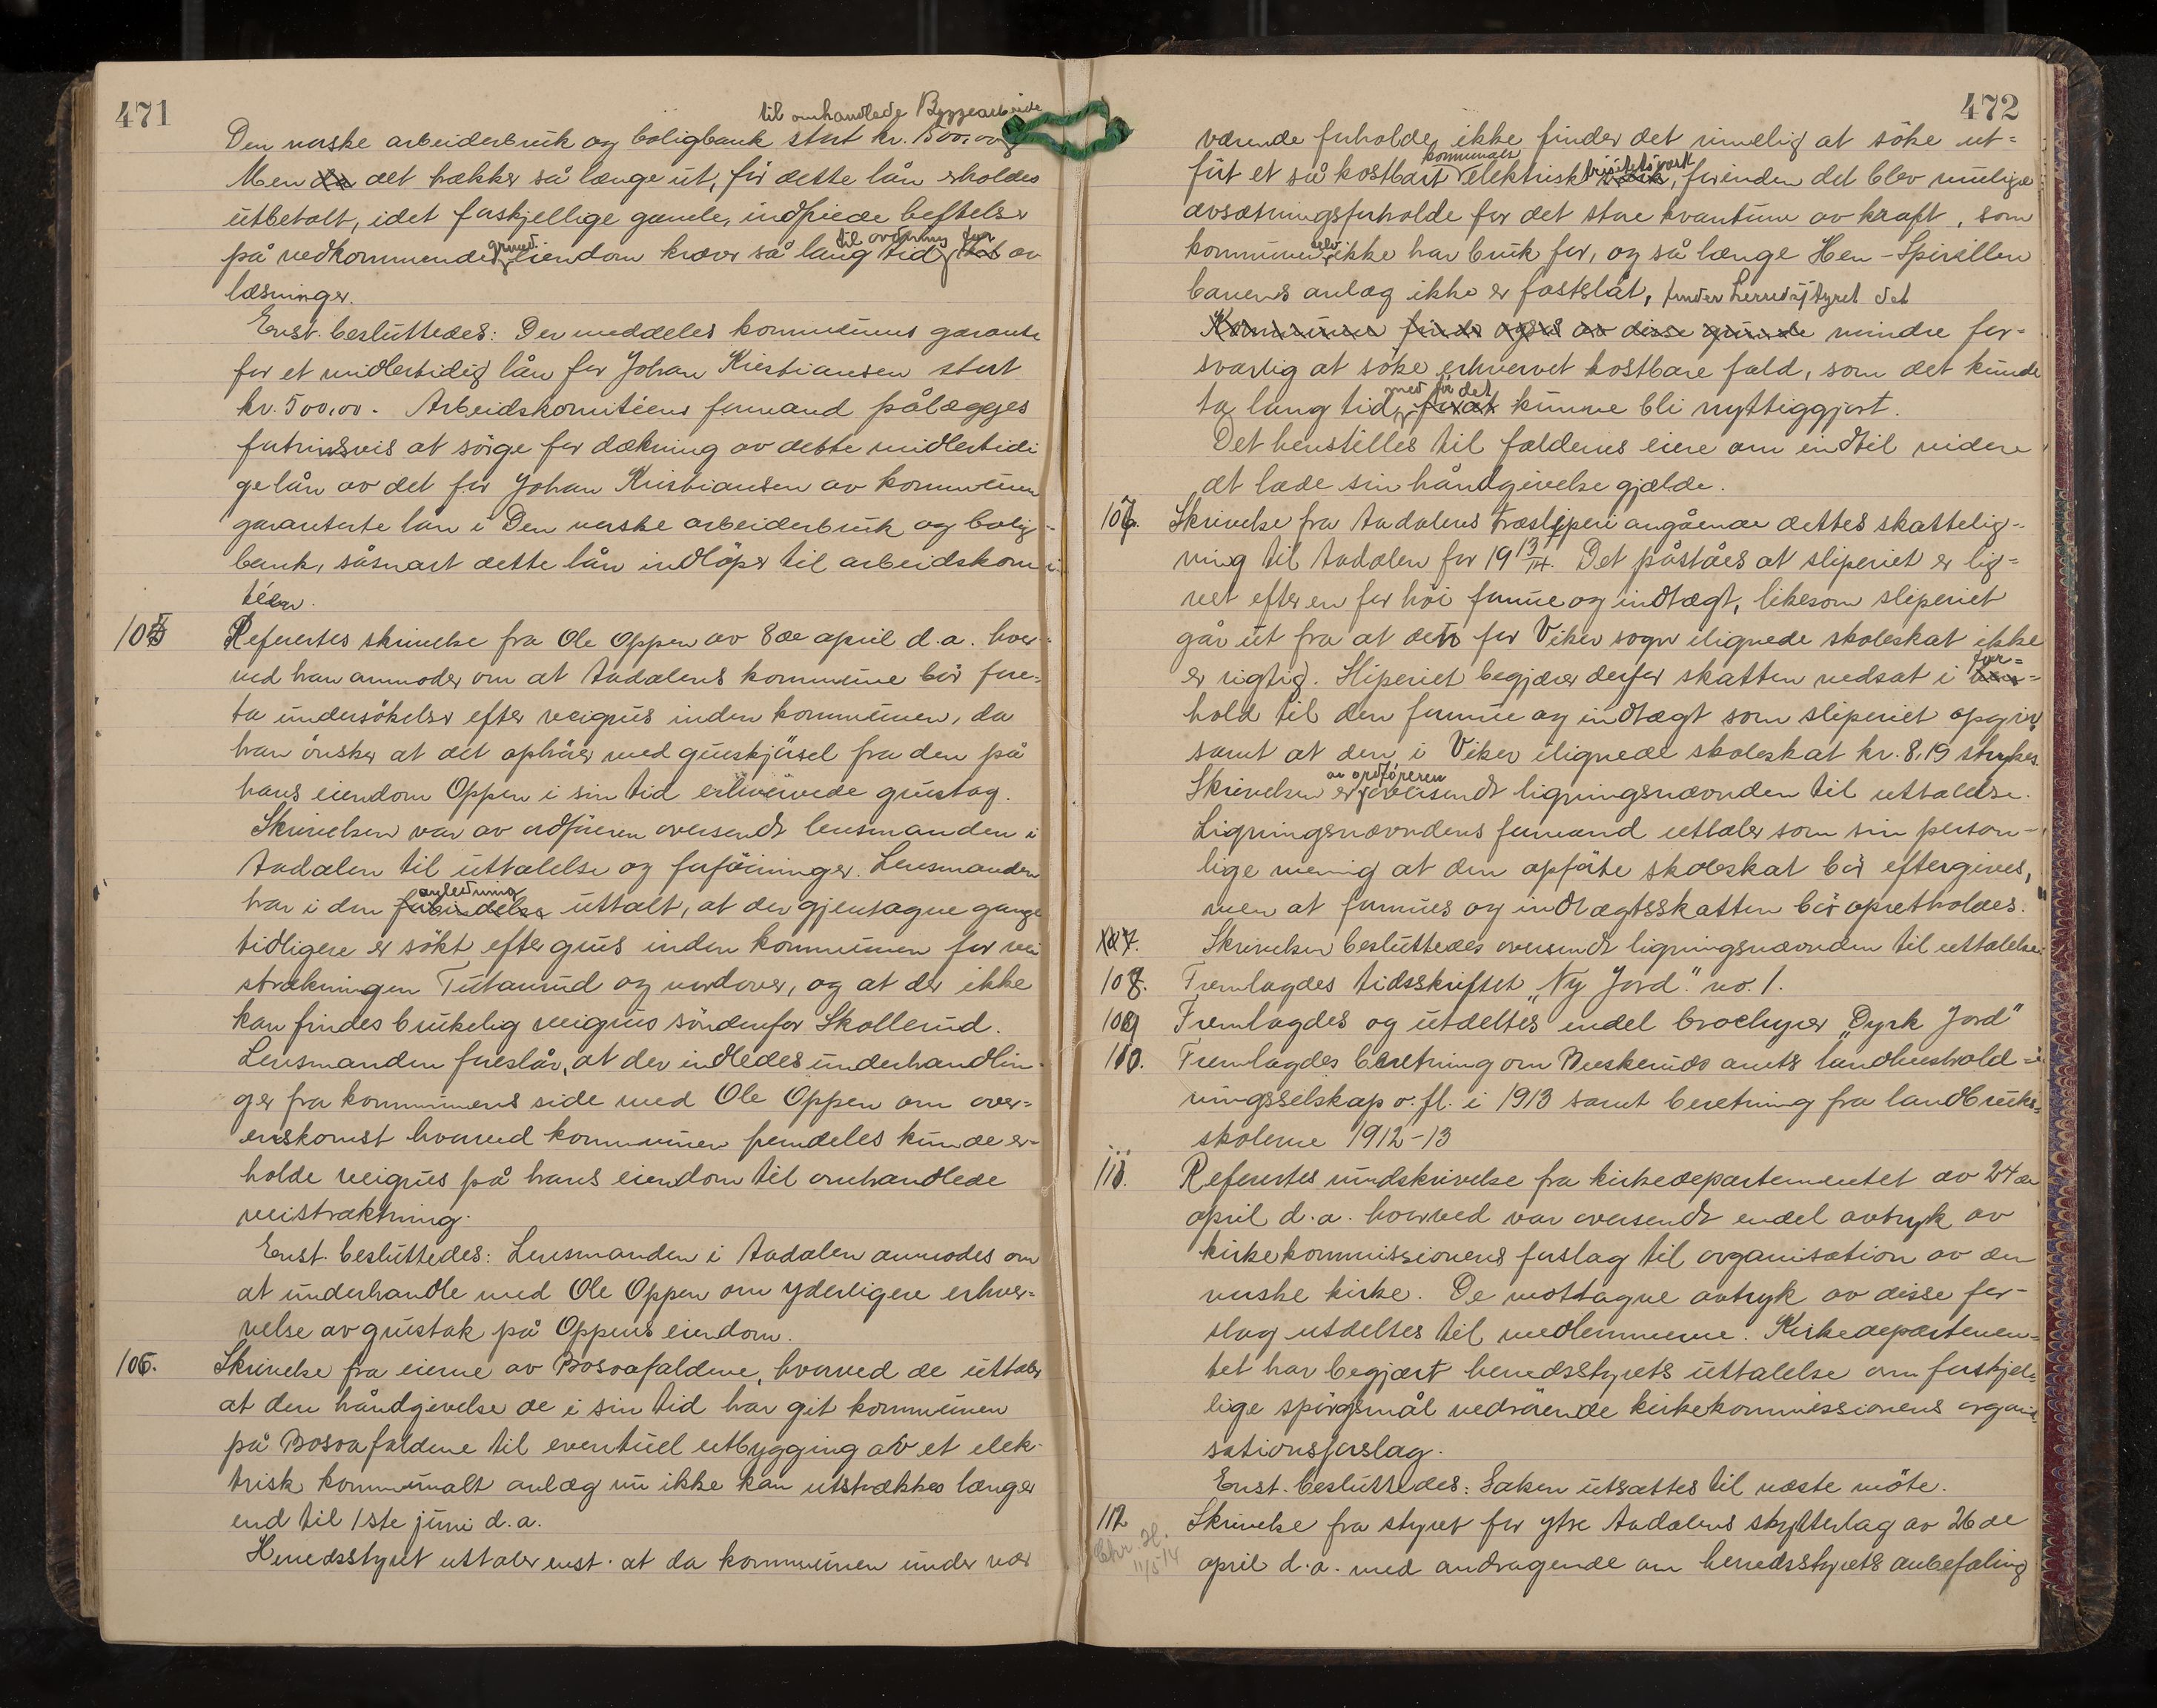 471
til omhandlede Byggearbeide
Den norske arbeiderbruk og boligbank stort kr. 1500,00
Men da det trækker så længe ut, før dette lån erholdes
utbetalt, idet forskjellige gamle, indfriede heftelser
på vedkommende grund eiendom kræver så lang tid til ordning før av
læsninger.
Enst. besluttedes: Der meddeles kommunens garanti
for et midlertidig lån for Johan Kristiansen stort
kr. 500,00. Arbeidskomitéens formand pålægges
fortrinsvis at sörge for dækning av dette midlertidi
ge lån av det for Johan Kristiansen av kommunen
garanterte lån i Den norske arbeiderbruk og bolig-
bank, såsnart dette lån indlöper til arbeidskomi-
téen.
105 Refertes skrivelse fra Ole Oppen av 8de april d.a. hvor-
ved han anmoder om at Aadalens kommune bör fore-
ta undersökelser efter veigrus inden kommunen, da
han önsker at det ophörer med gruskjörsel fra den på
hans eiendom Oppen i sin tid erhvervede grustag.
Skrivelsen var av ordföreren oversendt lensmanden i
Aadalen til uttalelse og forföininger. Lensmanden
har i den anledning forbindelse uttalt, at der gjentagne gange
tidligere er sökt efter grus inden kommunen for vei
strækningen Tutanrud og nordover, og at der ikke
kan findes brukelig veigrus söndenfor Skollerud.
Lensmanden foreslår, at der indledes underhandlin-
ger fra kommunens side med Ole Oppen om over-
enskomst hvorved kommunen fremdeles kunde er-
holde veigrus på hans eiendom til omhandlede
veistrækning.
Enst. besluttedes: Lensmanden i Aadalen anmodes om
at underhandle med Ole Oppen om yderligere erhver-
velse av grustak på Oppens eiendom.
106. Skrivelse fra eierne av Bosoafaldene, hvorved de uttaler
at den håndgivelse de i sin tid har git kommunen
på Bosoafaldene til eventuel utbygging av et elek-
trisk kommunalt anlæg nu ikke kan utstrækkes længer
end til 1ste juni d.a.
Herredsstyret uttaler enst. at da kommunen under nær
472
værende forholde ikke finder det rimelig at söke ut-
fört et så kostbart kommunalt elektrisk verk, forinden det blev mulige
avsætningsforholde for det store kvantum av kraft, som
kommunen selv ikke har bruk for, og så længe Hen-Spirillen
banens anlæg ikke er fastslåt, finder herredsstyret det
Kommunen finder også av disse grunde mindre for-
svarlig at söke erhvervet kostbare fald, som det kunde
ta lang tid med før det forat kunne bli nyttiggjort.
Det henstilles til faldenes eiere om indtil videre
at lade sin håndgivelse gjælde.
107. Skrivelse fra Aadalens Træsliperi angående dettes skattelig-
ning til Aadalen for 1913/14. Det påståes at sliperiet er lig-
net efter en for höi formue og indtægt, likesom sliperiet
går ut fra at den for Viker sogn ilignede skoleskat ikke
er rigtig. Sliperiet begjærer derfor skatten nedsat i for-
hold til den formue og indtægt som sliperiet opgir,
samt at den i Viker ilignede skoleskat kr. 8,19 strykes.
Skrivelsen er av ordføreren oversendt ligningsnævnden til uttalelse.
Ligningsnævndens formand uttaler som sin person-
lige mening at den opförte skoleskat bör eftergives,
men at formues og indtægtsskatten bör opretholdes.
Skrivelsen besluttedes oversendt ligningsnævnden til uttalelse.
108. Fremlagdes tidsskriftet „Ny Jord". no. 1.
109 Fremlagdes og utdeltes endel brochyrer „Dyrk Jord"
110. Fremlagdes beretning om Buskeruds amts landhushold-
ningsselskap o. fl. i 1913 samt beretning fra landbruks-
skolerne 1912-13
111. Refertes rundskrivelse fra kirkedepartementet av 24de
april d.a. hvorved var oversendt endel avtryk av
kirkekommissionens forslag til organisation av den
norske kirke. De mottagne avtryk av disse for-
slag utdeltes til medlemmerne. Kirkedepartemen-
tet har begjært herredsstyrets uttalelse om forskjel-
lige spörgsmål vedrörende kirkekommissionens organi-
sationsforslag.
Enst. besluttedes: Saken utsættes til næste möte.
112 Skrivelse fra styret for ytre Aadalens skytterlag av 26de
april d.a. med andragende om herredsstyrets anbefaling
Chr. H.
11/5 14